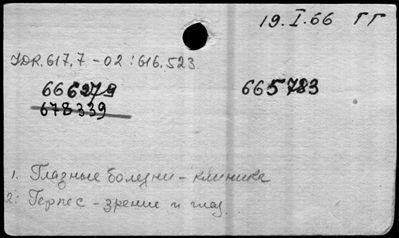 19.I.66 ГГ
УДК.617.7-02:616.523
666279 665783
678339
1. Глазные болезни - клиника
2. Герпес - зрение и глаз.